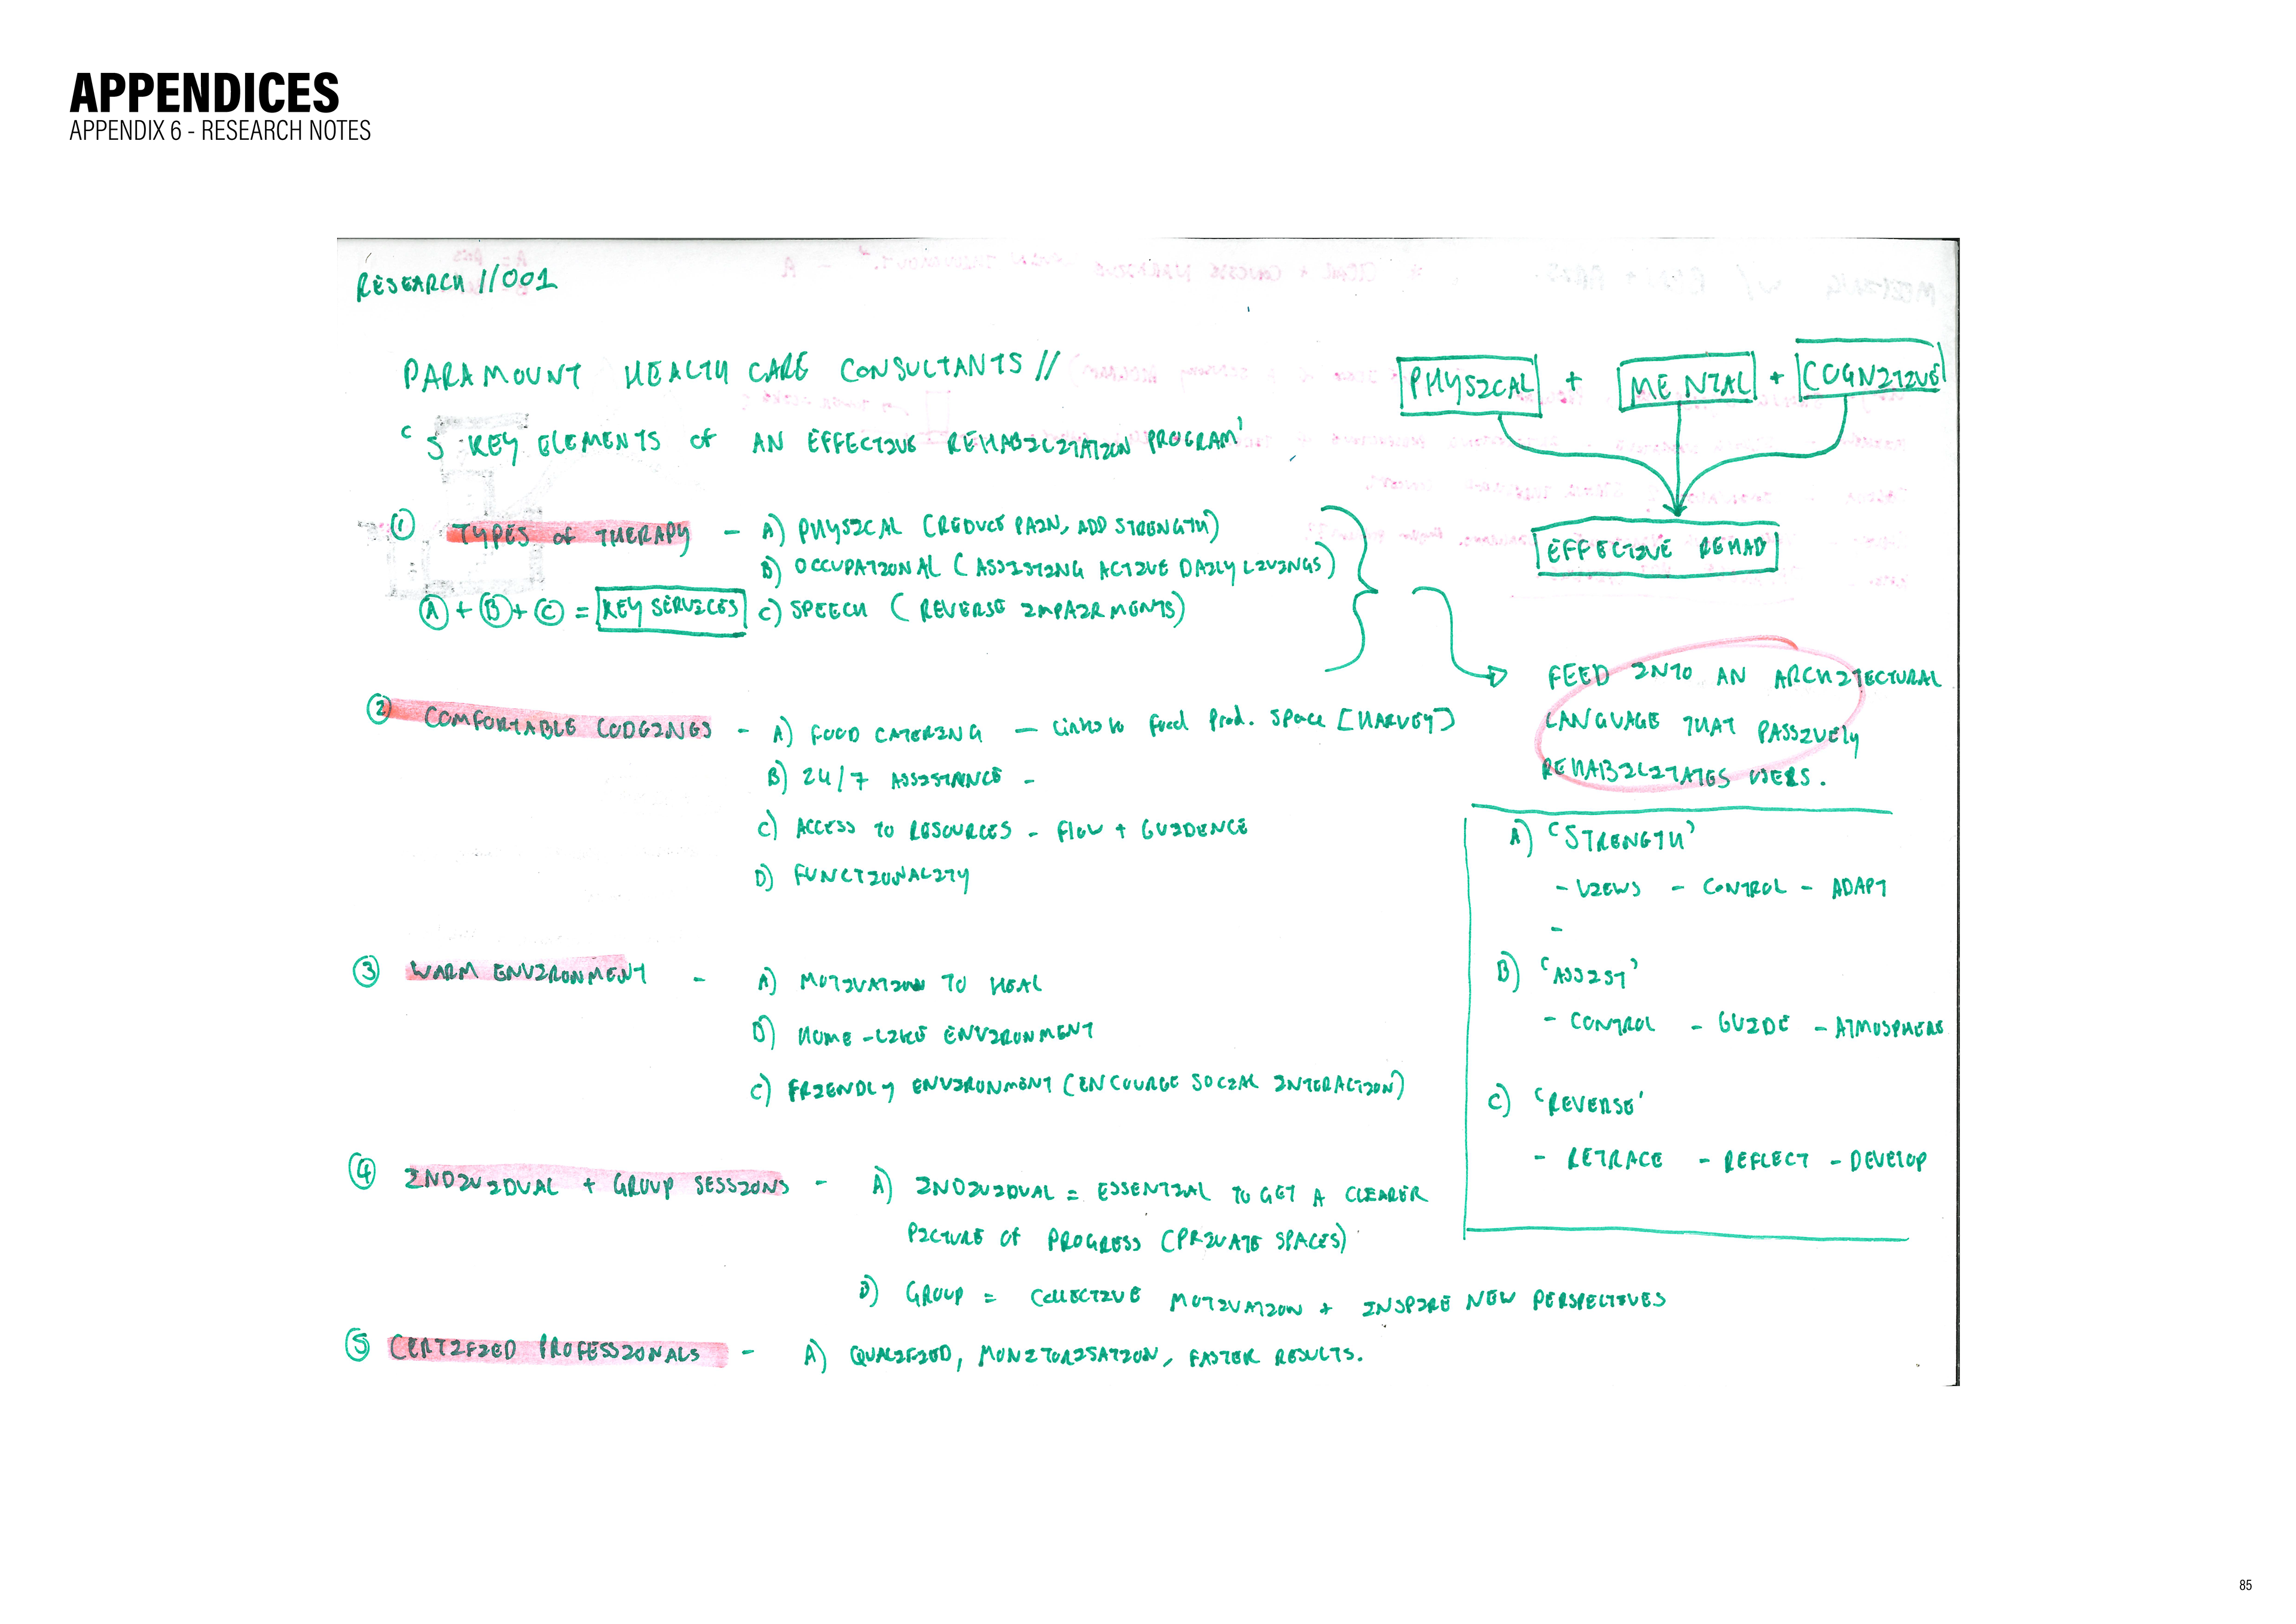 APPENDICES
APPENDIX 6 - RESEARCH NOTES
RESEARCH //001
PARAMOUNT HEALTH CARE CONSULTANTS //
'5 KEY ELEMENTS of AN EFFECTIVE REHABILITATION PROGRAM'
PHYSICAL + MENTAL + COGNITIVE
EFFECTIVE REHAB
① TYPES of THERAPY - A) PHYSICAL (REDUCE PAIN, ADD STRENGTH)
B) OCCUPATIONAL (ASSISTING ACTIVE DAILY LIVINGS)
Ⓐ + Ⓑ + Ⓒ = KEY SERVICES C) SPEECH (REVERSE IMPAIRMENTS)
FEED INTO AN ARCHITECTURAL
LANGUAGE THAT PASSIVELY
REHABILITATES USERS.
② COMFORTABLE LODGINGS - A) FOOD CATERING - Links to Food Prod. Space [HARVEY]
B) 24/7 ASSISTANCE -
C) ACCESS TO RESOURCES - FLOW + GUIDENCE
D) FUNCTIONALITY
③ WARM ENVIRONMENT - A) MOTIVATION TO HEAL
B) HOME-LIKE ENVIRONMENT
C) FRIENDLY ENVIRONMENT (ENCOURGE SOCIAL INTERACTION)
④ INDIVIDUAL + GROUP SESSIONS - A) INDIVIDUAL = ESSENTIAL TO GET A CLEARER
PICTURE OF PROGRESS (PRIVATE SPACES)
B) GROUP = COLLECTIVE MOTIVATION + INSPIRE NEW PERSPECTIVES
⑤ CERTIFIED PROFESSIONALS - A) QUALIFIED, MONITORISATION, FASTER RESULTS.
A) 'STRENGTH'
- VIEWS - CONTROL - ADAPT
-
B) 'ASSIST'
- CONTROL - GUIDE - ATMOSPHERE
C) 'REVERSE'
- RETRACE - REFLECT - DEVELOP
85